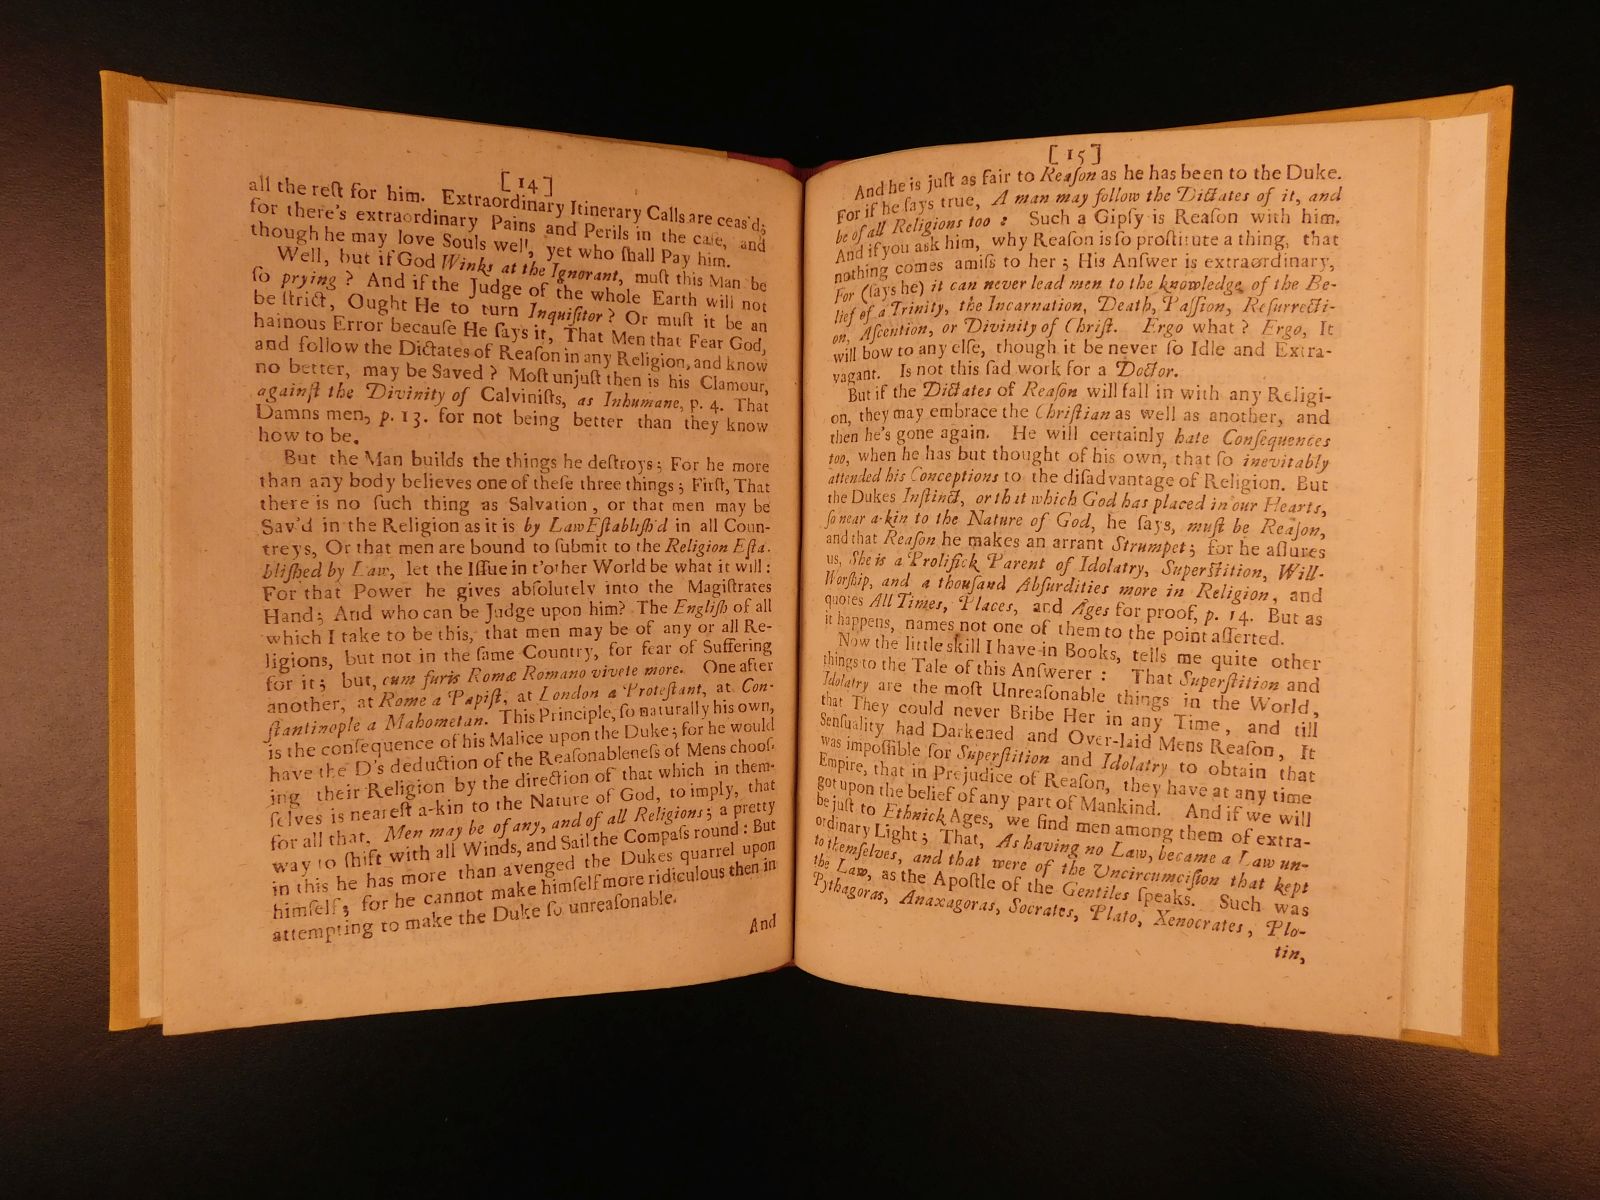 [ 14 ]
all the reſt for him. Extraordinary Itinerary Calls are ceas'd;
for there's extraordinary Pains and Perils in the caſe, and
though he may love Souls well, yet who ſhall Pay him.
Well, but if God Winks at the Ignorant, muſt this Man be
ſo prying? And if the Judge of the whole Earth will not
be ſtrict, Ought He to turn Inquiſitor? Or muſt it be an
hainous Error becauſe He ſays it, That Men that Fear God,
and follow the Dictates of Reaſon in any Religion, and know
no better, may be Saved? Moſt unjuſt then is his Clamour,
againſt the Divinity of Calviniſts, as Inhumane, p. 4. That
Damns men, p. 13. for not being better than they know
how to be.
But the Man builds the things he deſtroys; For he more
than any body believes one of theſe three things; Firſt, That
there is no ſuch thing as Salvation, or that men may be
Sav'd in the Religion as it is by Law Eſtabliſh'd in all Coun-
treys, Or that men are bound to ſubmit to the Religion Eſta-
bliſhed by Law, let the Iſſue in t'other World be what it will:
For that Power he gives abſolutely into the Magiſtrates
Hand; And who can be Judge upon him? The Engliſh of all
which I take to be this, that men may be of any or all Re-
ligions, but not in the ſame Country, for fear of Suffering
for it; but, cum furis Romæ Romano vivete more. One after
another, at Rome a Papiſt, at London a Proteſtant, at Con-
ſtantinople a Mahometan. This Principle, ſo naturally his own,
is the conſequence of his Malice upon the Duke; for he would
have the D's deduction of the Reaſonableneſs of Mens chooſ-
ing their Religion by the direction of that which in them-
ſelves is neareſt a-kin to the Nature of God, to imply, that
for all that, Men may be of any, and of all Religions; a pretty
way to ſhift with all Winds, and Sail the Compaſs round: But
in this he has more than avenged the Dukes quarrel upon
himſelf; for he cannot make himſelf more ridiculous then in
attempting to make the Duke ſo unreaſonable.
And
[ 15 ]
And he is juſt as fair to Reaſon as he has been to the Duke.
For if he ſays true, A man may follow the Dictates of it, and
be of all Religions too: Such a Gipſy is Reaſon with him.
And if you ask him, why Reaſon is ſo proſtitute a thing, that
nothing comes amiſs to her; His Anſwer is extraordinary,
For (ſays he) it can never lead men to the knowledge of the Be-
lief of a Trinity, the Incarnation, Death, Paſſion, Reſurrecti-
on, Aſcention, or Divinity of Chriſt. Ergo what? Ergo, It
will bow to any elſe, though it be never ſo Idle and Extra-
vagant. Is not this ſad work for a Doctor.
But if the Dictates of Reaſon will fall in with any Religi-
on, they may embrace the Chriſtian as well as another, and
then he's gone again. He will certainly hate Conſequences
too, when he has but thought of his own, that ſo inevitably
attended his Conceptions to the diſadvantage of Religion. But
the Dukes Inſtinct, or that which God has placed in our Hearts,
ſo near a-kin to the Nature of God, he ſays, muſt be Reaſon,
and that Reaſon he makes an arrant Strumpet; for he aſſures
us, She is a Prolifick Parent of Idolatry, Superſtition, Will-
Worſhip, and a thouſand Abſurdities more in Religion, and
quotes All Times, Places, and Ages for proof, p. 14. But as
it happens, names not one of them to the point aſſerted.
Now the little skill I have in Books, tells me quite other
things to the Tale of this Anſwerer: That Superſtition and
Idolatry are the moſt Unreaſonable things in the World,
that They could never Bribe Her in any Time, and till
Senſuality had Darkened and Over-laid Mens Reaſon, It
was impoſſible for Superſtition and Idolatry to obtain that
Empire, that in Prejudice of Reaſon, they have at any time
got upon the belief of any part of Mankind. And if we will
be juſt to Ethnick Ages, we find men among them of extra-
ordinary Light; That, As having no Law, became a Law un-
to themſelves, and that were of the Uncircumciſion that kept
the Law, as the Apoſtle of the Gentiles ſpeaks. Such was
Pythagoras, Anaxagoras, Socrates, Plato, Xenocrates, Plo-
tin,